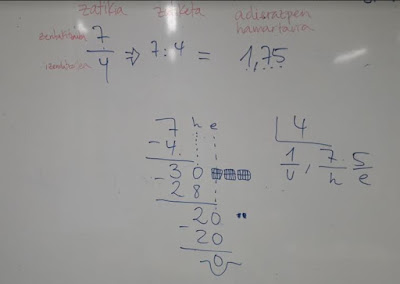 zatikia zatiketa adierazpen hamartarra
zenbatzailea 7/4 ⇒ 7:4 = 1,75
izendatzailea
7 h e | 4
- 4 1, 7 5
- 3 0 u h e
2 8
2 0
- 2 0
0